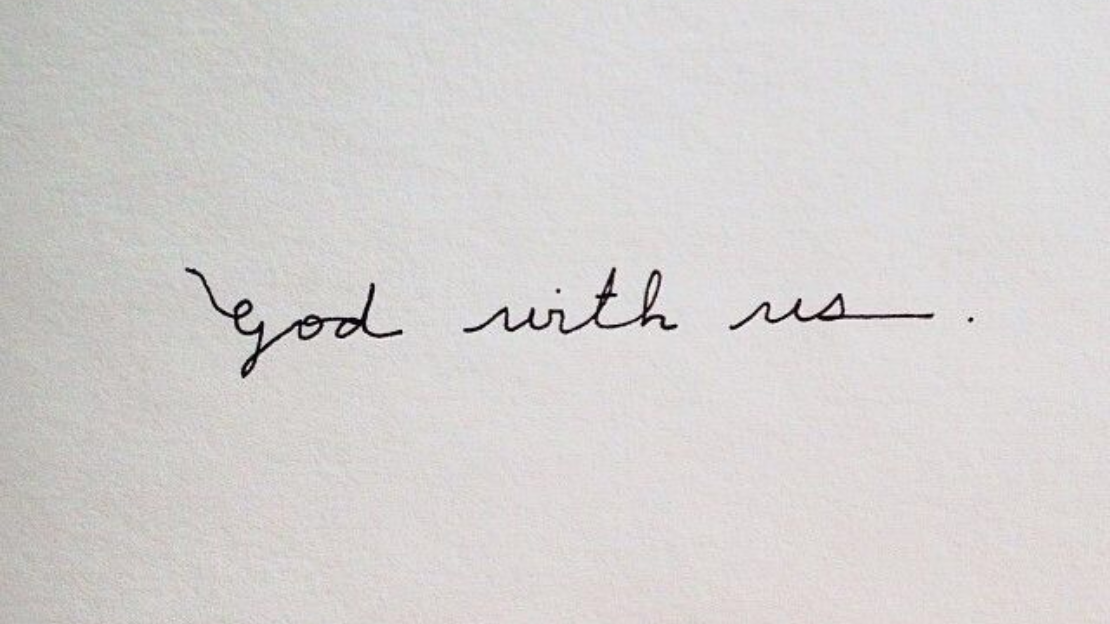 God with us.